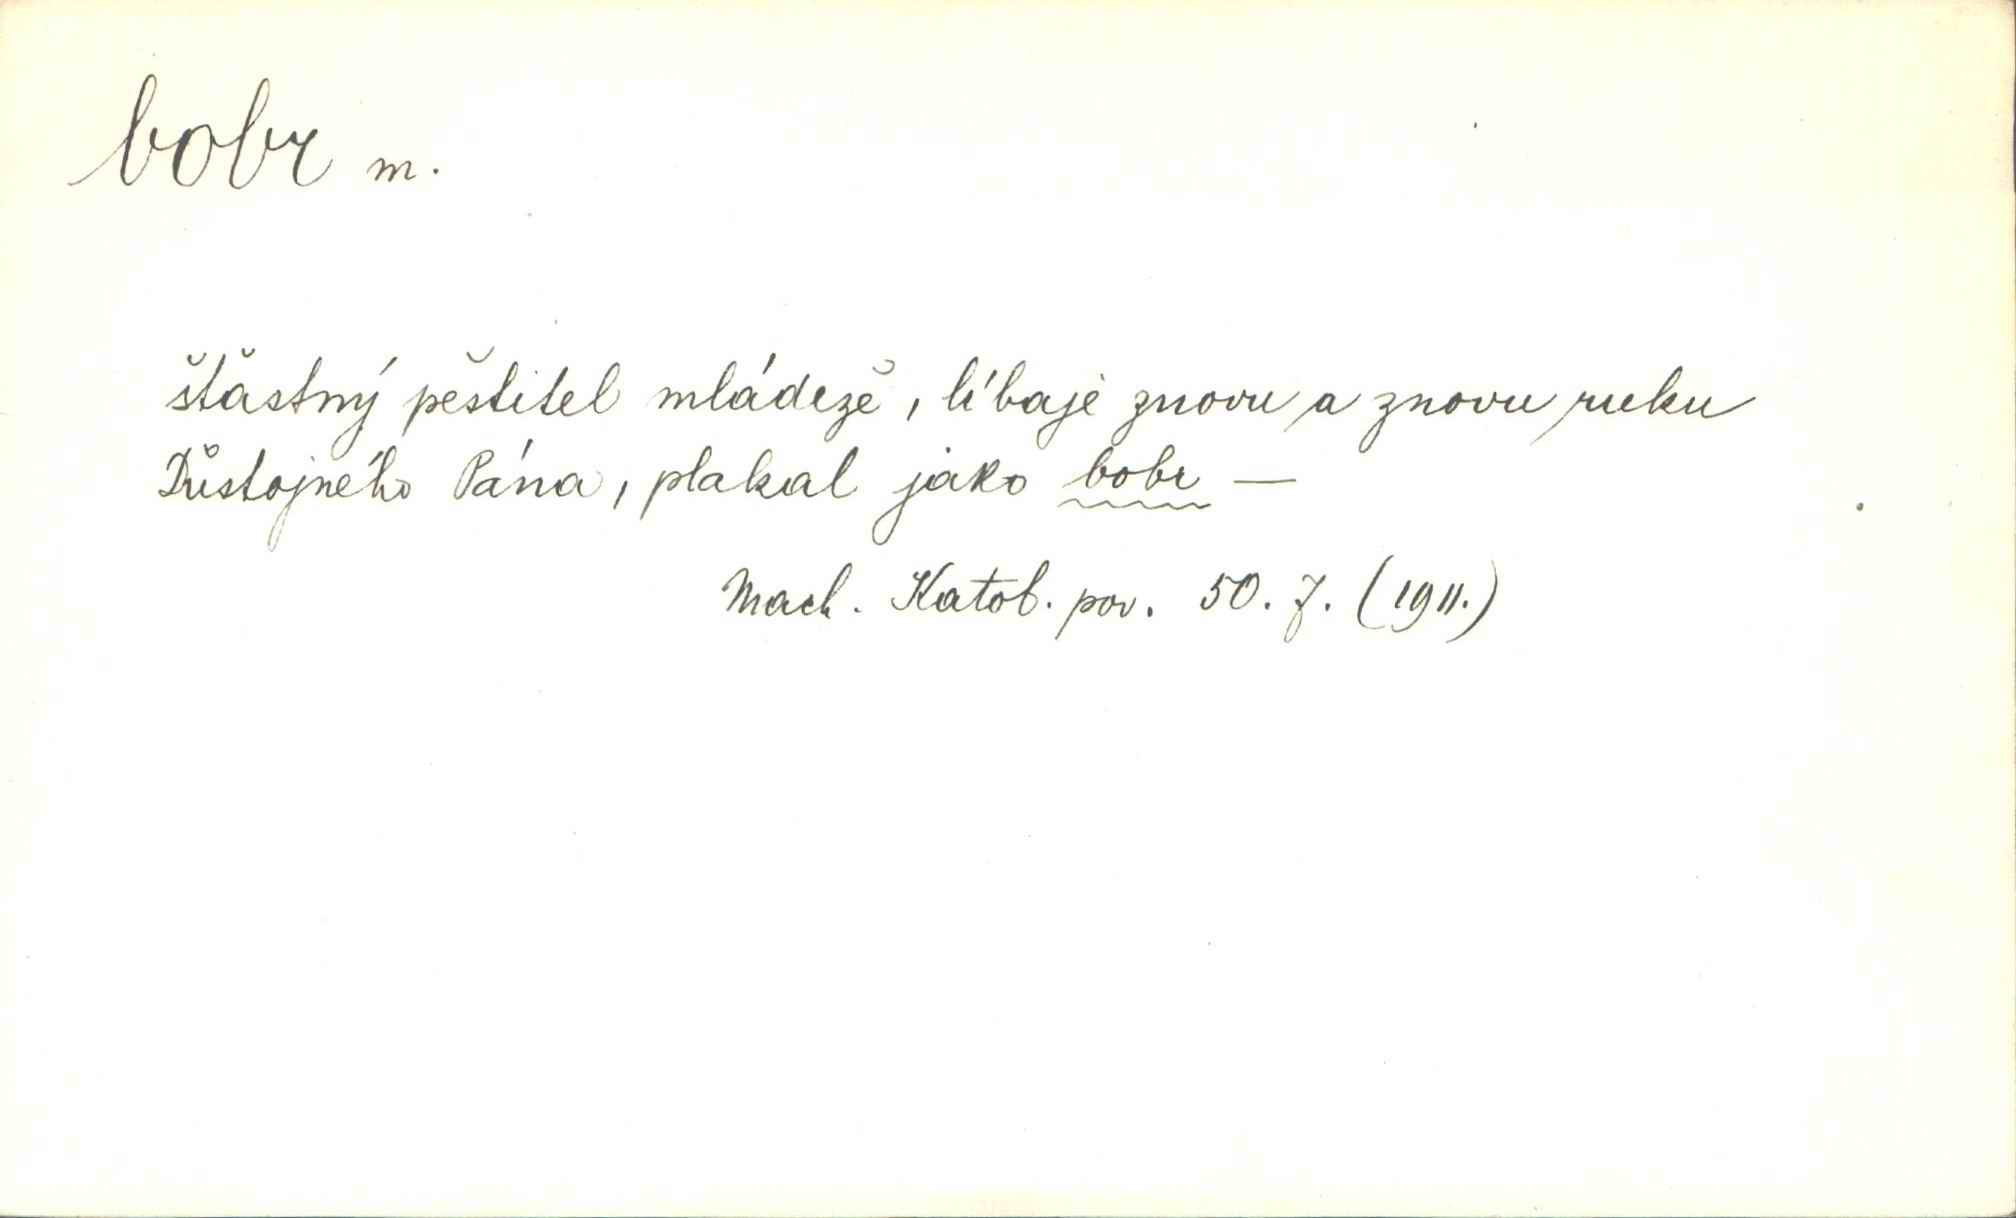 bobr m.
šťastný pěstitel mládeže, líbaje znovu a znovu ruku
Důstojného Pána, plakal jako bobr —
Mach. Katol. pov. 50. 7. (1911.)